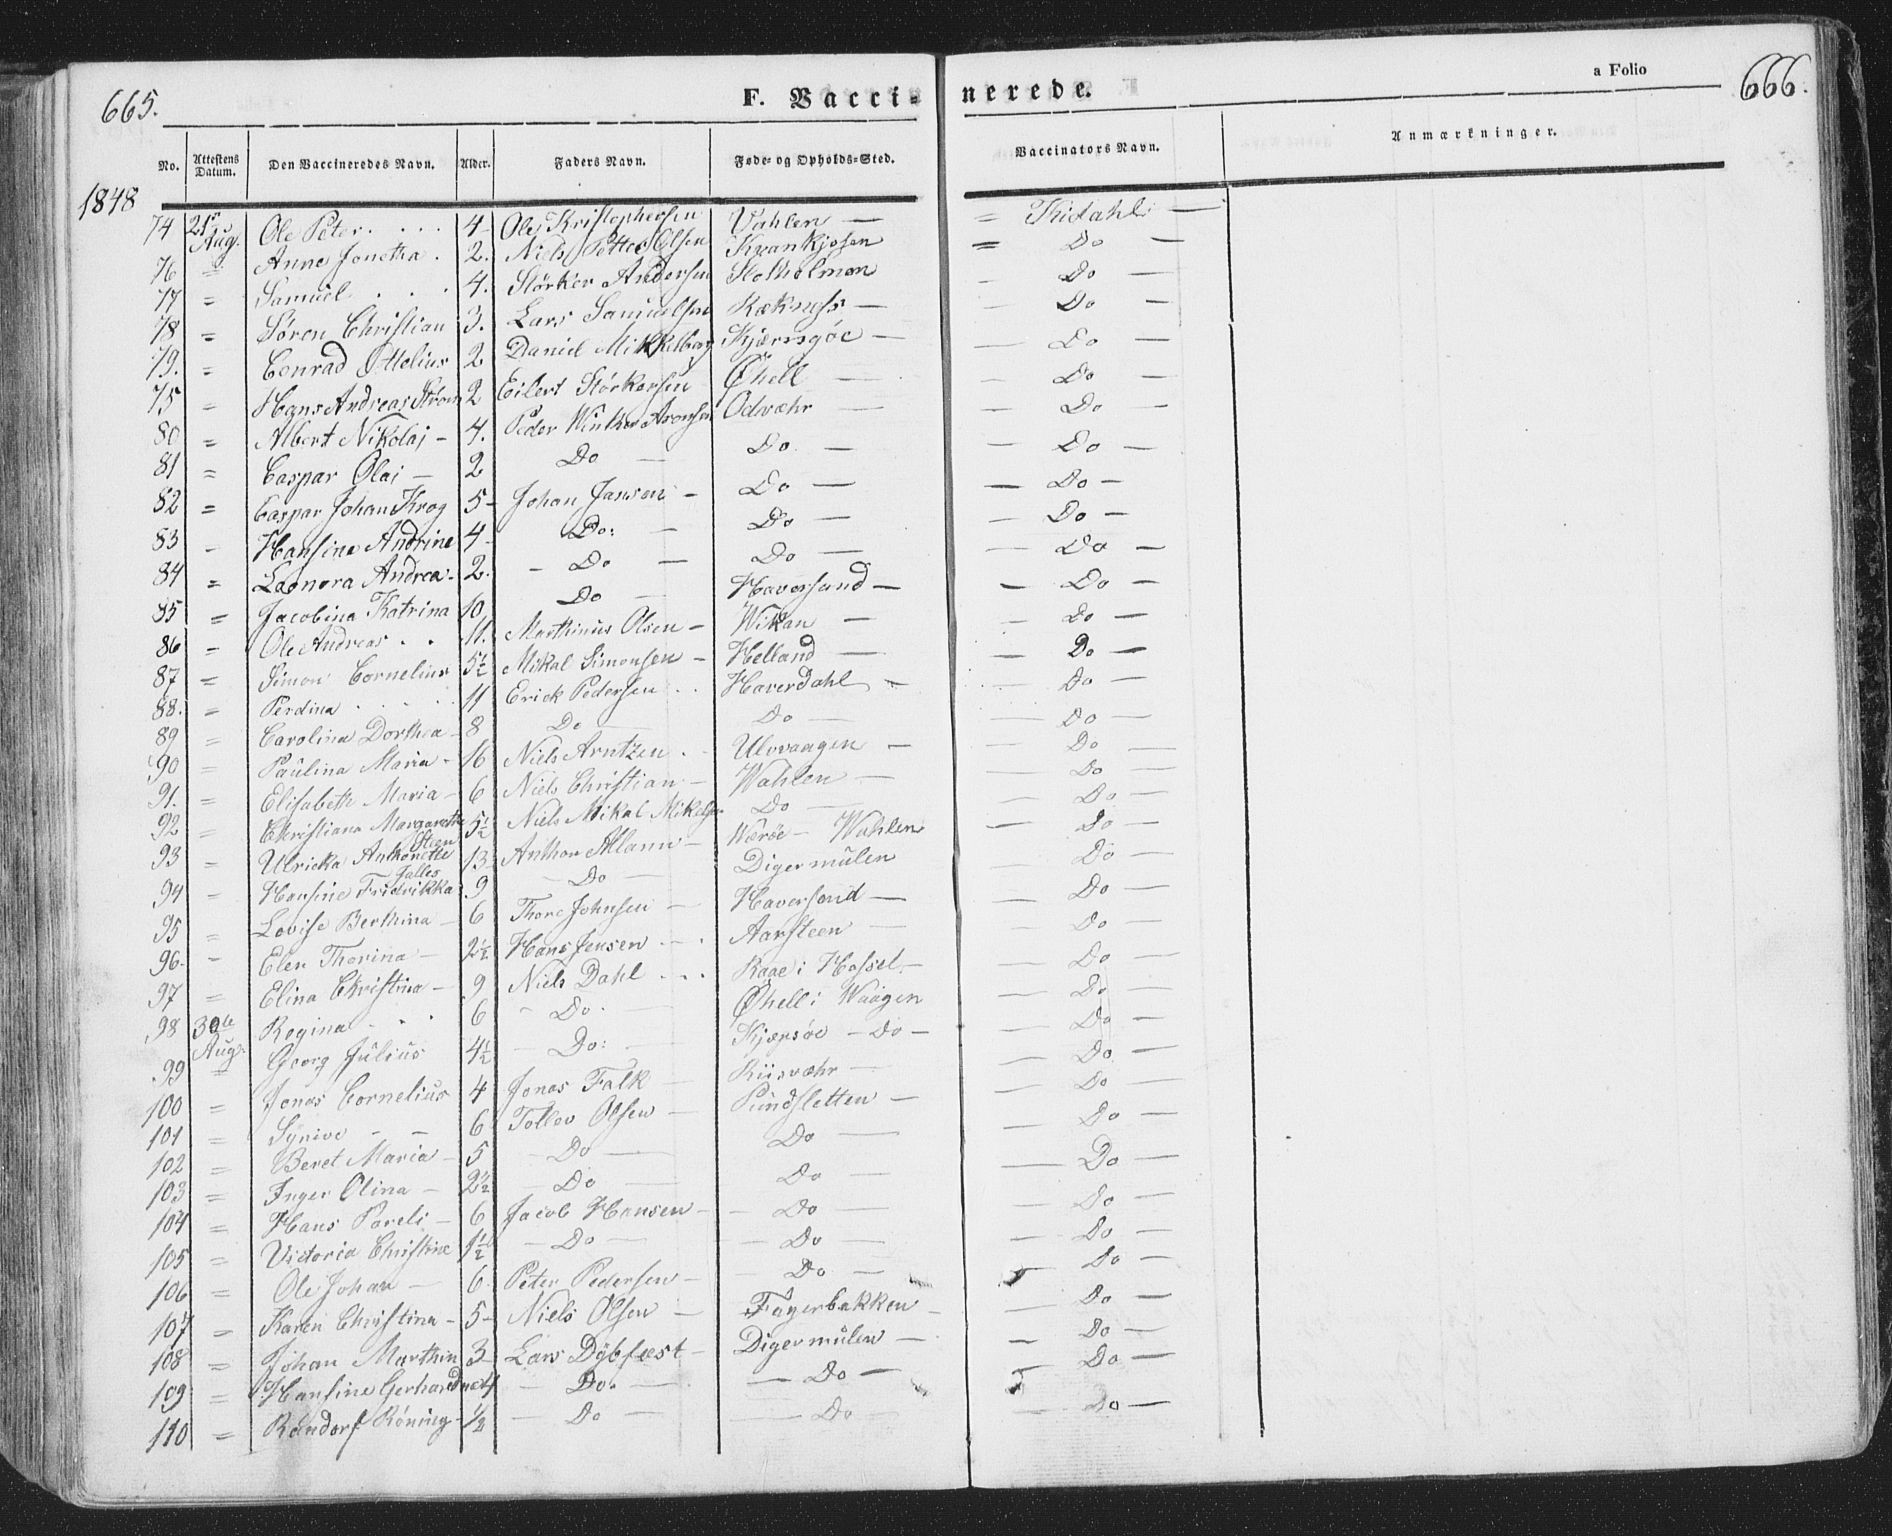 665.
F. Vacci-
nerede.
a Folio
666.
No.
Attestens Datum.
Den Vaccineredes Navn.
Alder.
Faders Navn.
Føde- og Opholds-Sted.
Vaccinators Navn.
Anmærkninger.
1848
74 21n Aug. Ole Peter . . . 4 - Ole Kristophersen Vahlen — =
76 = Anne Jonetta . 2. Niels Petter Olsen Kvankjosen = Do —
77 = Samuel . . . 4. Störker Andersen Slotholmen - Do —
78 = Søren Christian 3. Lars Samuelsen Ræknæss — - Do —
79. = Conrad Ottelius 2 Daniel Mikkelborg Kjærsøe — — Do —
75 = Hans Andreas Strøm 2 Eilert Störkersen Øhell — — Do —
80 = Albert Nikolai - 4. Peder Winther Aronsen Odvæhr — — Do —
81 = Caspar Olai — 2 Do — Do — — Do —
82 = Caspar Johan Krog 5 - Johan Jansen - Do — — Do —
83 - Hansine Andrine 4 - Do: — Do — — Do —
84 = Leonora Andrea - 2. - Do — Do — — Do —
85 = Jacobina Katrina 10. Do — Haversund — — Do —
86 = Ole Andreas . . 11. Marthinus Olsen - Wikan — — Do —
87 = Simon Cornelius 5½ Mikal Simonsen - Helland — — Do —
88. = Perdina . . . . 11 Erick Pedersen . . Haverdahl - — Do —
89 = Carolina Dorthea - 8 Do — Do — — Do —
90 = Paulina Maria - 16 Niels Arntzen . Ulvvaagen — — Do —
91. = Elisabeth Maria - 6 Niels Christian - Wahlen — — Do —
92 = Christiana Margarethe Steen 5½ Niels Mikal Mikelsen Do — — Do —
93 = Ulricka Anthonette Jalles 13 Anthon Allann - Værøe - Wahlen — Do —
94 = Hansine Fredrikka 9 - Do — Digermulen — Do —
95 = Lovise Berthina - 6 Thore Johnsen — Haversond — — Do —
96. - Elen Thorina — 2½ Hans Jensen — . Aarsteen — — Do —
97 = Elina Christina — 9 Niels Dahl . . . Raae i Hassel — — Do —
98 30te Aug. Regina - . . 6 - Do . — Øhell i Waagen — Do —
Georg Julius 4½ — Do: — Kjærsøe - Do - — Do —
99 = Jonas Cornelius 4 Jonas Falk — Riisvæhr — — Do —
100 = Synive - - 6 Tollev Olsen - Pundsletten — — Do —
101 = Beret Maria - 5 - Do — Do — — Do —
102 = Inger Olina — 2½ - Do — Do — — Do —
103 = Hans Pareli - 6 Jacob Hansen - Do — — Do —
104 = Victoria Christine 1½ - Do — - Do — — Do —
105 = Ole Johan — 6 Peter Pedersen — - Do — — Do —
106 = Karen Christina - 5 - Niels Olsen — Fagerbakken — — Do —
107 = Johan Marthin 3 Lars Dybfæst — Digermulen — — Do —
108 = Hansine Gerhardine 4 - Do. — — Do — — Do —
109 = Randorf Röning - ½ - Do — - Do — — Do —
110 =